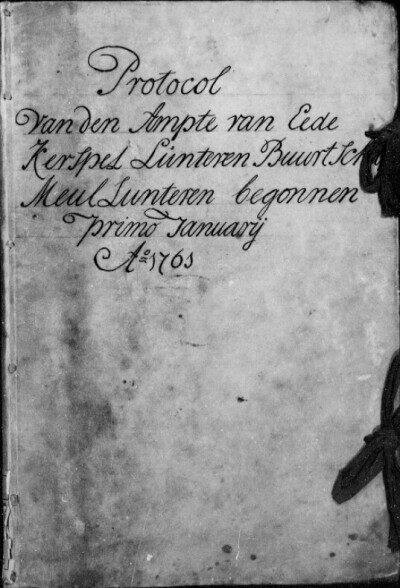 Protocol
van den Ampte van Eede
Kerspel Lunteren Buurt Sch
Meul Lunteren begonnen
primo Januarij
Aº 1761